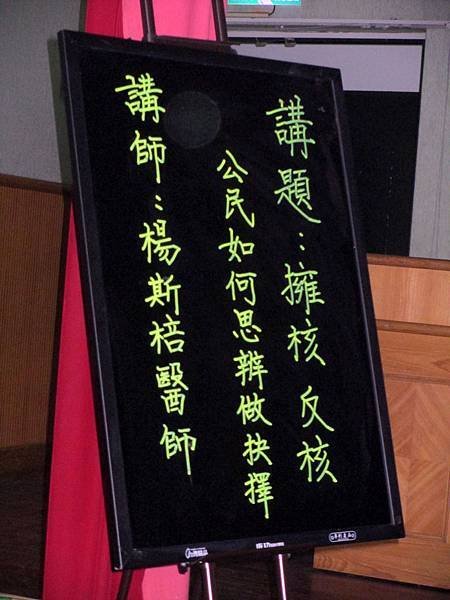 講題：擁核 反核
公民如何思辨做抉擇
講師：楊斯棓醫師